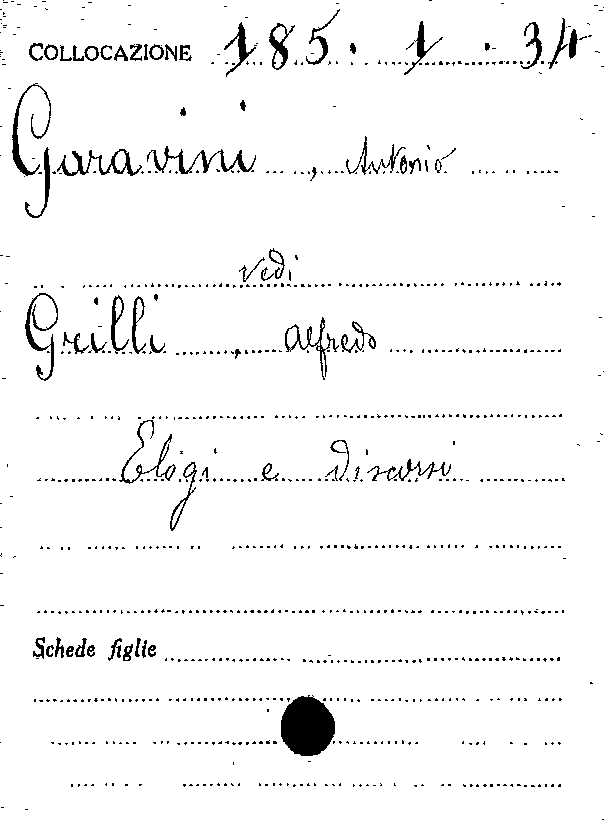 COLLOCAZIONE 185. 1. 34
Garavini, Antonio
vedi
Grilli, Alfredo
Elogi e discorsi
Schede figlie